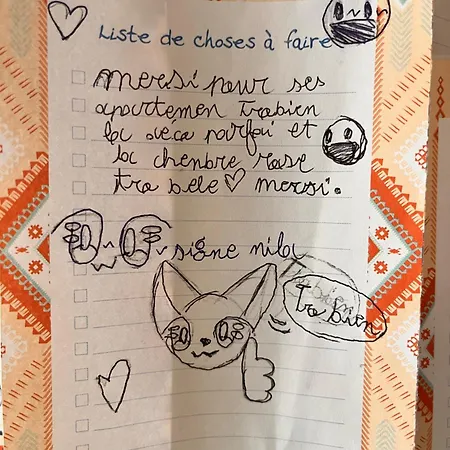 Liste de choses à faire
mersi pour ses
apartemen trabien
la deca parfai et
la chenbre rase
tra bele mersi.
signe nila
tra bien